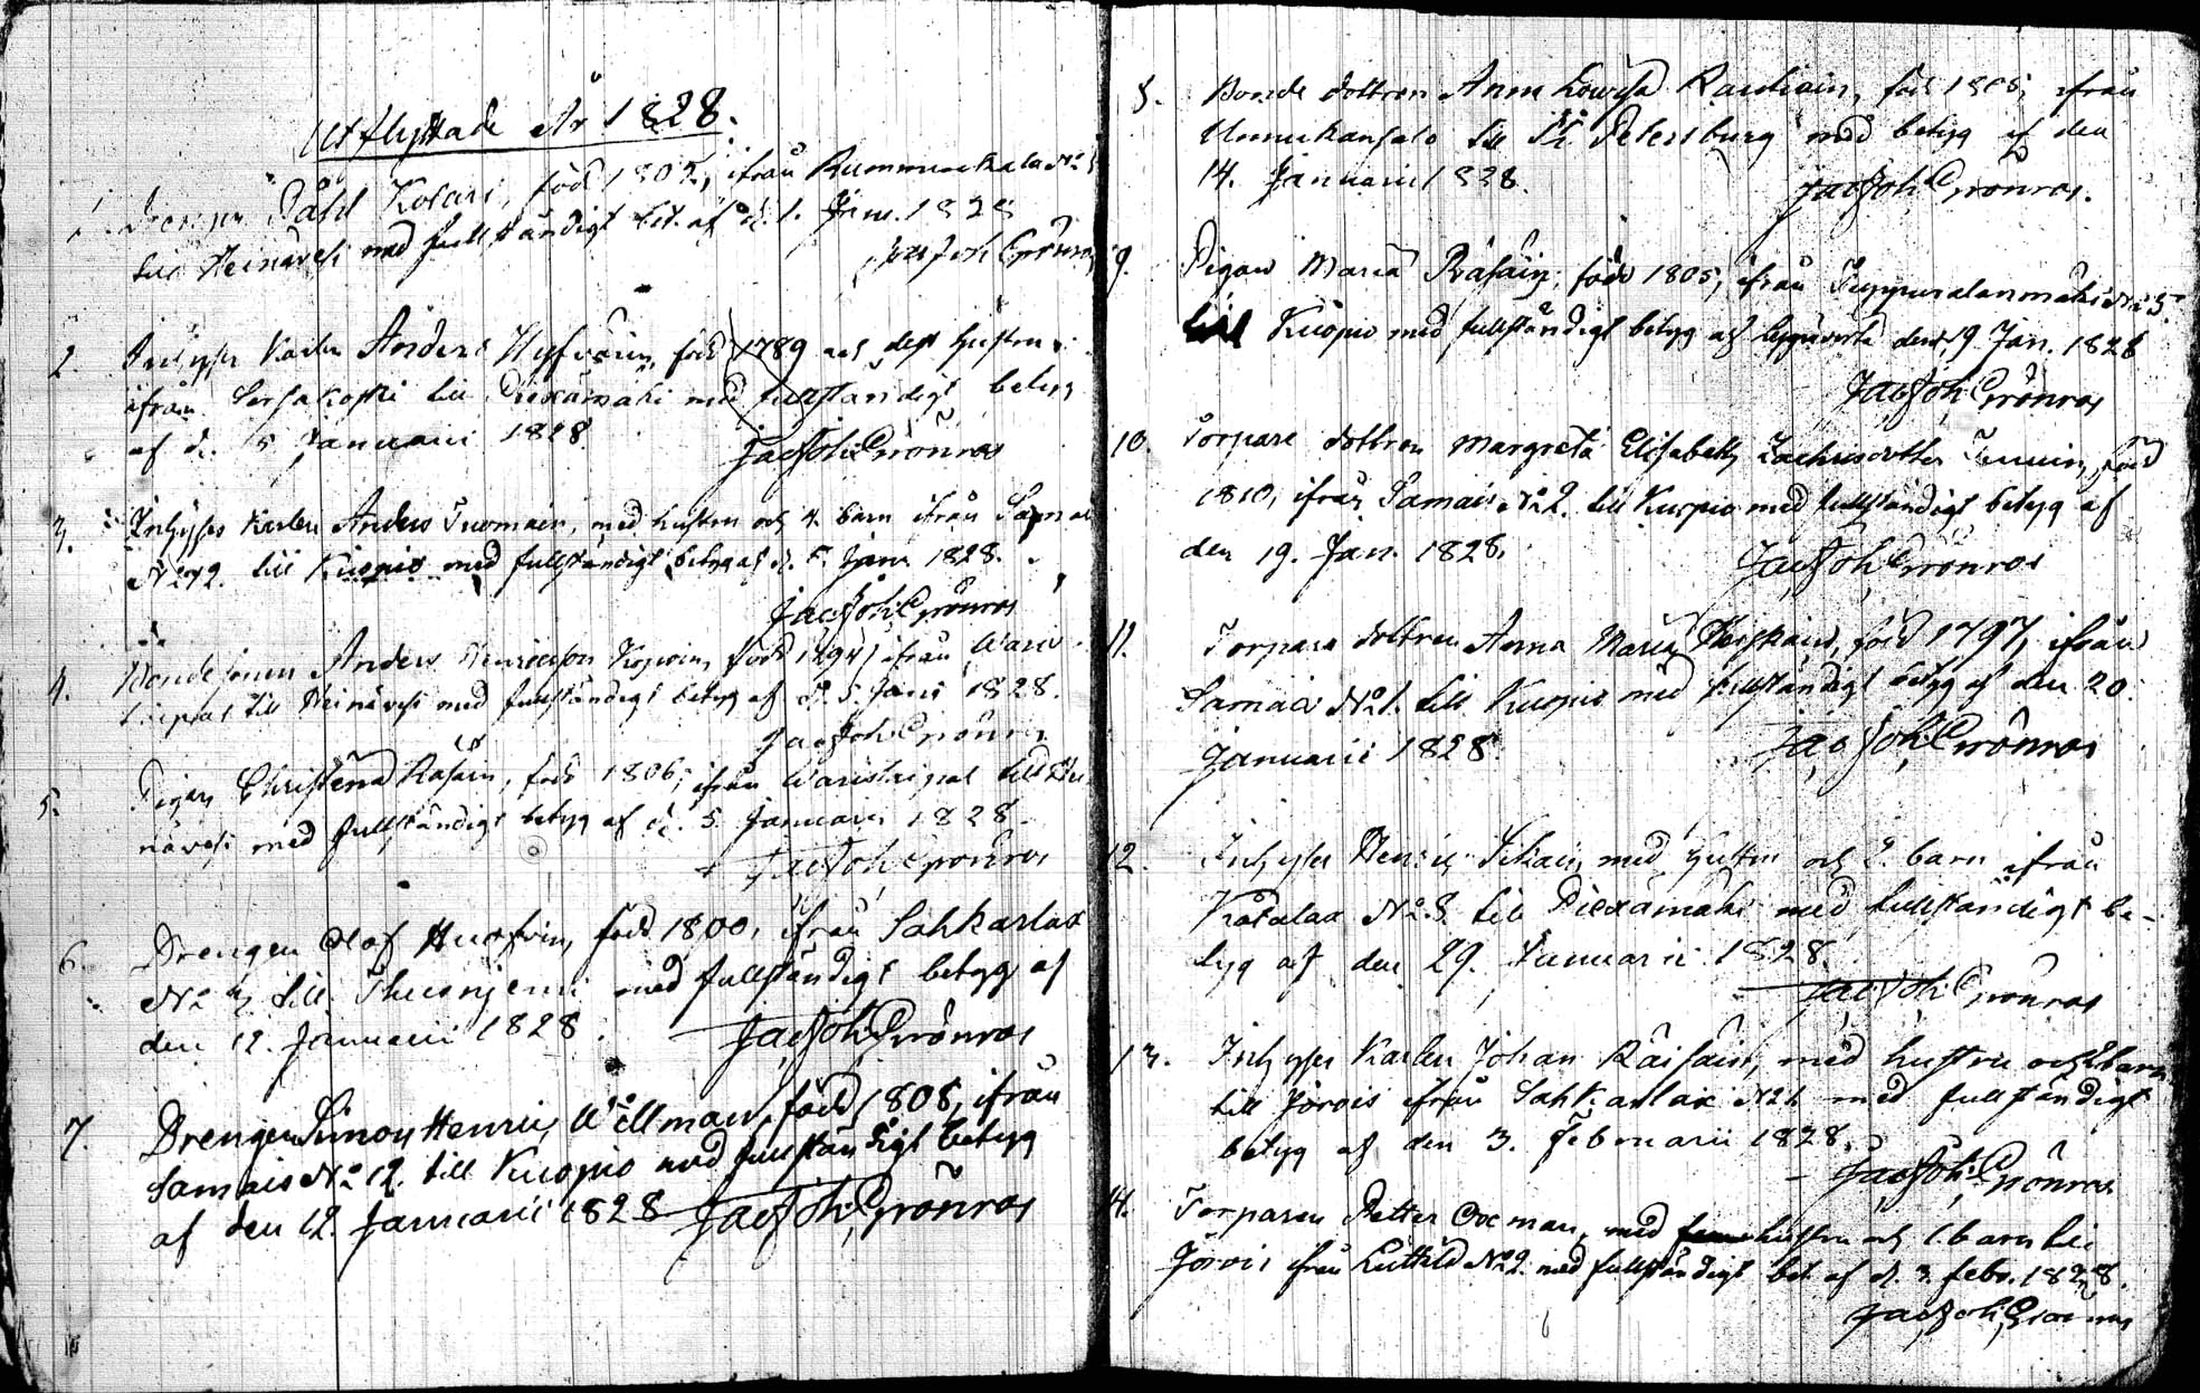 Utflyttade År 1828.
1. Drengen Påhl Kolari, född 1802, ifrån Rummukkala No
till Heinävesi med fullständigt bet. af d. 1. Janu. 1828
Jac Joh Grönros
2. Inhyses Karlen Anders Hyfvärin, född 1789 och dess hustru
ifrån till Piexämäki med fullständigt betyg
af d. 5 Januarii 1828
Jac Joh Grönros
3. Inhyses Karlen Anders Tuomain, med hustru och 4. barn ifrån Samais
No 2. till Kuopio med fullständigt betyg af d. 5. Janu 1828.
Jac Joh Grönros
4. Bonde sonen Anders Henricsson född 1794 ifrån Waris
till Heinävesi med fullständigt betyg af d. 5. Janu 1828.
Jac Joh Grönros
5. Pigan Christina Räsäin, född 1806, ifrån till Hei
nävesi med fullständigt betyg af d. 5. Januarii 1828
Jac Joh Grönros
6. Drengen Olof född 1800, ifrån Sahkarlax
No 4 till Thusniemi med fullständigt betyg af
den 12. Januarii 1828
Jac Joh Grönros
7. Drengen Simon Henric Willman, född 1808, ifrån
Samais No 12. till Kuopio med fullständigt betyg
af den 12. Januarii 1828 Jac Joh Grönros
8. Bonde dottren Anna Lowisa född 1808, ifrån
till St Petersburg med betyg af den
14. Januarii 1828.
Jac Joh Grönros.
9. Pigan Maria Räsäin, född 1805, ifrån No 5.
till Kuopio med fullständigt betyg af den 19. Jan. 1828
Jac Joh Grönros
10. Torpare dottren Margreta Elisabeth Zachrisdotter född
1810, ifrån Samais No 2. till Kuopio med fullständigt betyg af
den 19. Jan. 1828.
Jac Joh Grönros
11. Torpare dottren Anna Maria född 1797, ifrån
Samais No 1. till Kuopio med fullständigt betyg af den 20.
Januarii 1828.
Jac Joh Grönros
12. Inhyses Henric med hustru och 2. barn ifrån
No 8. till Piexämäki med fullständigt be-
tyg af den 29. Januarii 1828.
Jac Joh Grönros
13. Inhyses Karlen Johan Räisäin, med hustru och barn
till Jorois ifrån Sahkarlax No 1. med fullständigt
betyg af den 3. Februarii 1828.
Jac Joh Grönros
14. Torparen Petter Oxman, med hustru och 1 barn till
Jorois ifrån No 2. med fullständigt bet. af d. 3 febr. 1828.
Jac Joh Grönros